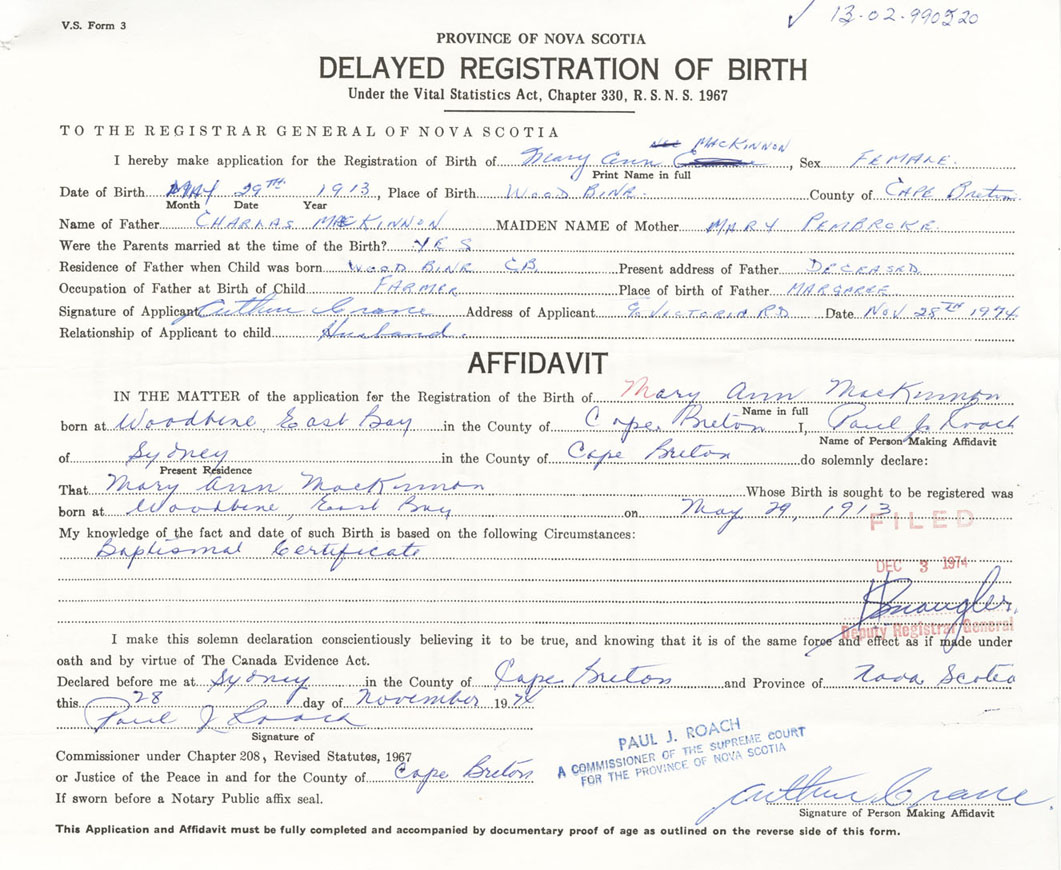 V.S. Form 3
✓ 13-02-990520
PROVINCE OF NOVA SCOTIA
DELAYED REGISTRATION OF BIRTH
Under the Vital Statistics Act, Chapter 330, R. S. N. S. 1967
TO THE REGISTRAR GENERAL OF NOVA SCOTIA
MACKINNON
I hereby make application for the Registration of Birth of Mary Ann, Sex FEMALE.
Print Name in full
Date of Birth MAY 29TH 1913, Place of Birth WOOD BINE. County of CAPE Breton
Month Date Year
Name of Father CHARLES MACKINNON MAIDEN NAME of Mother MARY PEMBROKE.
Were the Parents married at the time of the Birth? YES
Residence of Father when Child was born WOOD BINE C.B. Present address of Father DECEASED
Occupation of Father at Birth of Child FARMER Place of birth of Father MARGAREE
Signature of Applicant Arthur Crane Address of Applicant VICTORIA RD Date NOV 28TH 1974
Relationship of Applicant to child Husband.
AFFIDAVIT
IN THE MATTER of the application for the Registration of the Birth of Mary Ann MacKinnon
Name in full
born at Woodbine, East Bay in the County of Cape Breton I, Paul J. Roach
Name of Person Making Affidavit
of Sydney in the County of Cape Breton do solemnly declare:
Present Residence
That Mary Ann MacKinnon Whose Birth is sought to be registered was
born at Woodbine, East Bay on May 29, 1913
FILED
My knowledge of the fact and date of such Birth is based on the following Circumstances:
Baptismal Certificate
DEC 3 1974
Deputy Registrar General
I make this solemn declaration conscientiously believing it to be true, and knowing that it is of the same force and effect as if made under
oath and by virtue of The Canada Evidence Act.
Declared before me at Sydney in the County of Cape Breton and Province of Nova Scotia
this 28 day of November 1974
Paul J Roach
Signature of
Commissioner under Chapter 208, Revised Statutes, 1967
or Justice of the Peace in and for the County of Cape Breton
If sworn before a Notary Public affix seal.
PAUL J. ROACH
A COMMISSIONER OF THE SUPREME COURT
FOR THE PROVINCE OF NOVA SCOTIA
Arthur Crane.
Signature of Person Making Affidavit
This Application and Affidavit must be fully completed and accompanied by documentary proof of age as outlined on the reverse side of this form.